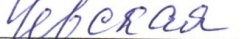 Чевская